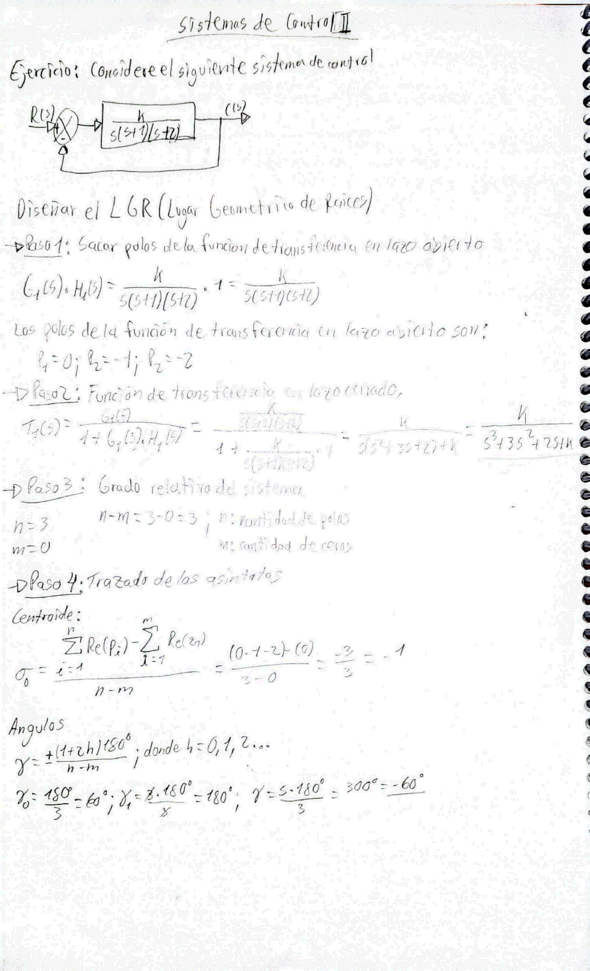 Sistemas de Control II
Ejercicio: Considere el siguiente sistema de control
R(s) + - K / s(s+1)(s+2) C(s)
Diseñar el LGR (Lugar Geometrico de Raices)
→ Paso 1: Sacar polos de la funcion de transferencia en lazo abierto
G₁(s)·H₁(s) = K / s(s+1)(s+2) · 1 = K / s(s+1)(s+2)
Los polos de la función de transferencia en lazo abierto son:
P₁=0; P₂=-1; P₂=-2
→ Paso 2: Función de transferencia en lazo cerrado,
T₁(s) = G₁(s) / 1+G₁(s)·H₁(s) = K / s(s+1)(s+2) / 1 + K / s(s+1)(s+2) · 1 = K / s(s²+3s+2)+K = K / s³+3s²+2s+K
→ Paso 3: Grado relativo del sistema
n=3 n-m=3-0=3 ; n: cantidad de polos
m=0 m: cantidad de ceros
→ Paso 4: Trazado de las asintotas
Centroide:
σ₀ = Σ(i=1, n) Re(Pᵢ) - Σ(i=1, m) Re(zᵢ) / n-m = (0-1-2)-(0) / 3-0 = -3/3 = -1
Angulos
γ = ±(1+2h)180° / n-m ; donde h=0,1,2...
γ₀ = 180°/3 = 60°; γ₁ = 3·180°/3 = 180°; γ = 5·180°/3 = 300° = -60°